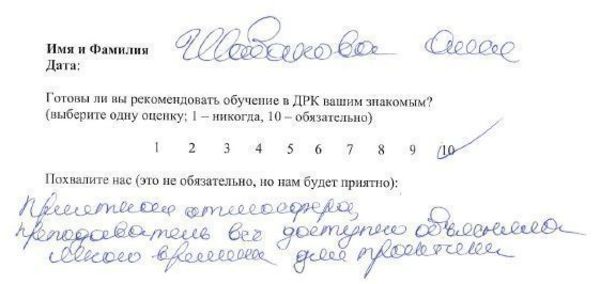 Имя и Фамилия Шабанова Анна
Дата:
Готовы ли вы рекомендовать обучение в ДРК вашим знакомым?
(выберите одну оценку; 1 – никогда, 10 – обязательно)
1 2 3 4 5 6 7 8 9 10
Похвалите нас (это не обязательно, но нам будет приятно):
Приятная атмосфера,
преподаватель всё доступно объясняла
много времени для практики